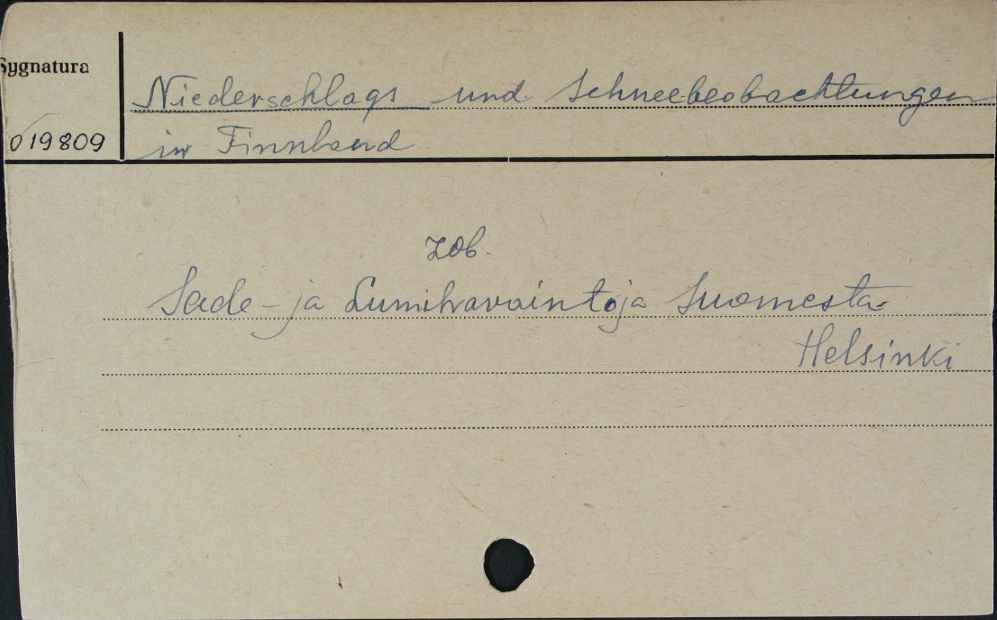 Sygnatura
019809
Niederschlags und Schneebeobachtungen
in Finnland
zob.
Sade- ja Lumihavaintoja Suomesta-
Helsinki